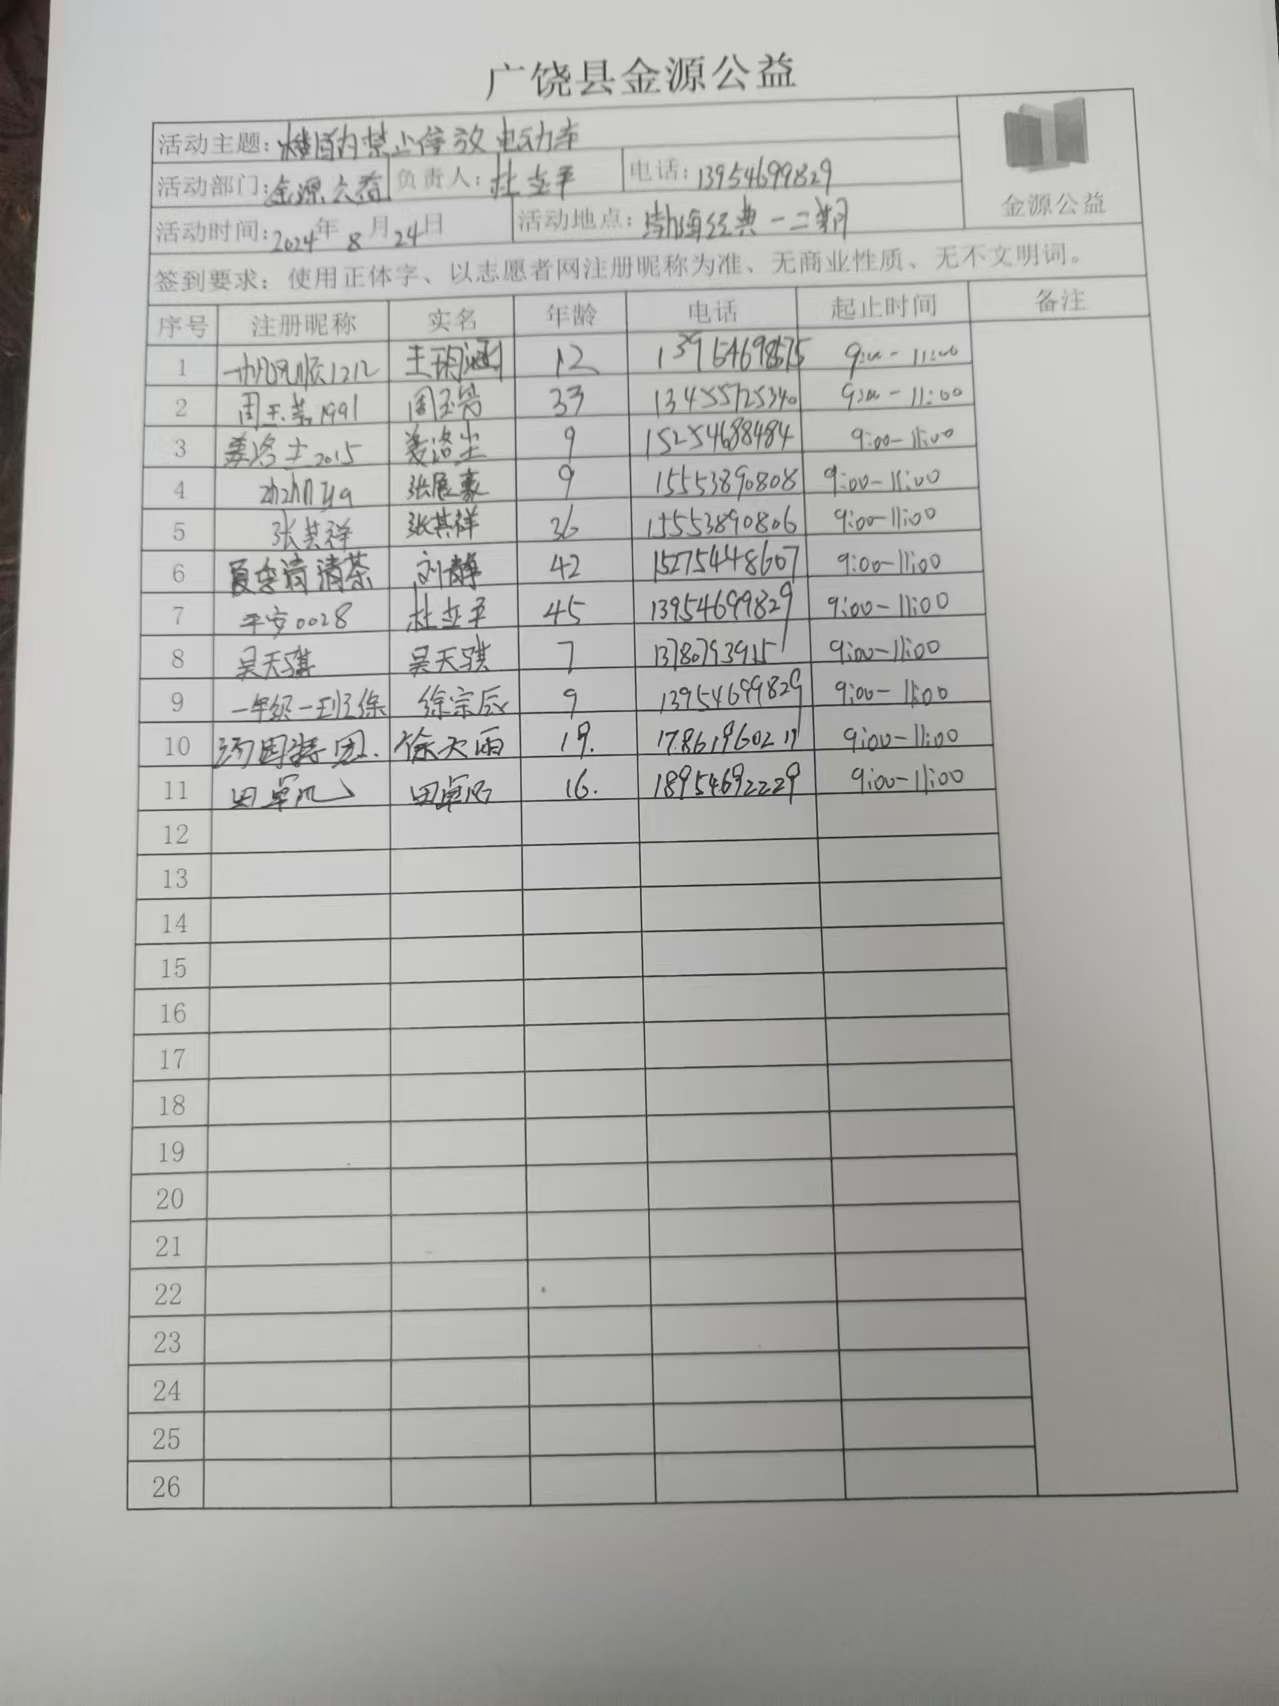 广饶县金源公益
活动主题：楼道内禁止停放电动车
活动部门：金源公益 负责人：杜立平 电话：13954699829
金源公益
活动时间：2024年8月24日 活动地点：渤海经典一二期
签到要求：使用正体字、以志愿者网注册昵称为准、无商业性质、无不文明词。
序号 注册昵称 实名 年龄 电话 起止时间 备注
1 一帆风顺1212 王玥涵 12 9:00-11:00
2 33 13455725340 9:00-11:00
3 姜洛尘2015 姜洛尘 9 15254688484 9:00-11:00
4 张展豪 9 15553890808 9:00-11:00
5 张其祥 张其祥 36 15553890806 9:00-11:00
6 夏季清清茶 刘静 42 15275448607 9:00-11:00
7 平安0028 杜立平 45 13954699829 9:00-11:00
8 吴天骐 吴天骐 7 9:00-11:00
9 一年级一班徐 徐宗辰 9 13954699829 9:00-11:00
10 徐天雨 19. 17861960217 9:00-11:00
11 田卓凡 田卓凡 16. 18954692229 9:00-11:00
12
13
14
15
16
17
18
19
20
21
22
23
24
25
26